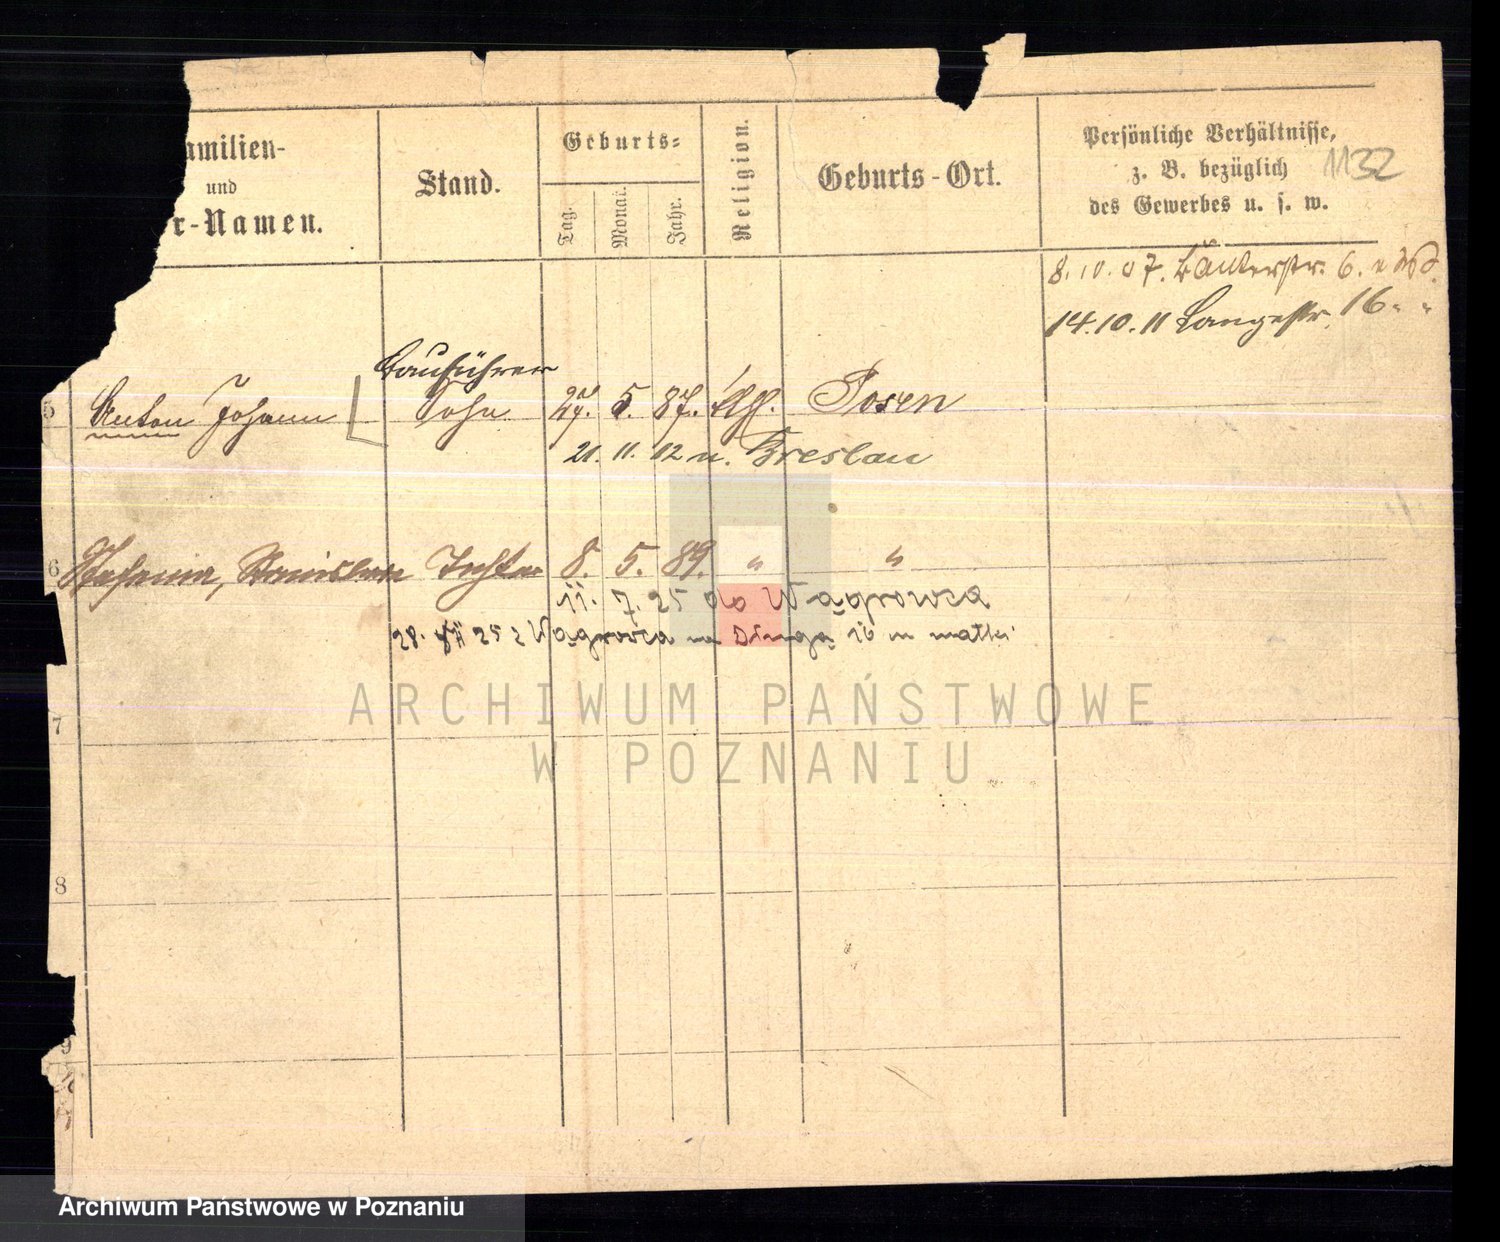 amilien-
und
r-Namen.
Stand.
Geburts-
Tag.
Monat.
Jahr.
Religion.
Geburts-Ort.
Persönliche Verhältnisse,
z. B. bezüglich
des Gewerbes u. s. w.
1132
8.10.07. Bäckerstr. 6.
14.10.11 Langestr. 16. "
Bauführer
5 Anton Johann Sohn 27. 5. 87. kath. Posen
21. 11. 12 n. Breslau
6 Stefania, Stanislawa Tochter 8. 5. 89. " "
11. 7. 25 do Wągrowca
28. VII 25 z Wągrowca na Długą 16 m matki
7
8
9
ARCHIWUM PAŃSTWOWE
W POZNANIU
Archiwum Państwowe w Poznaniu